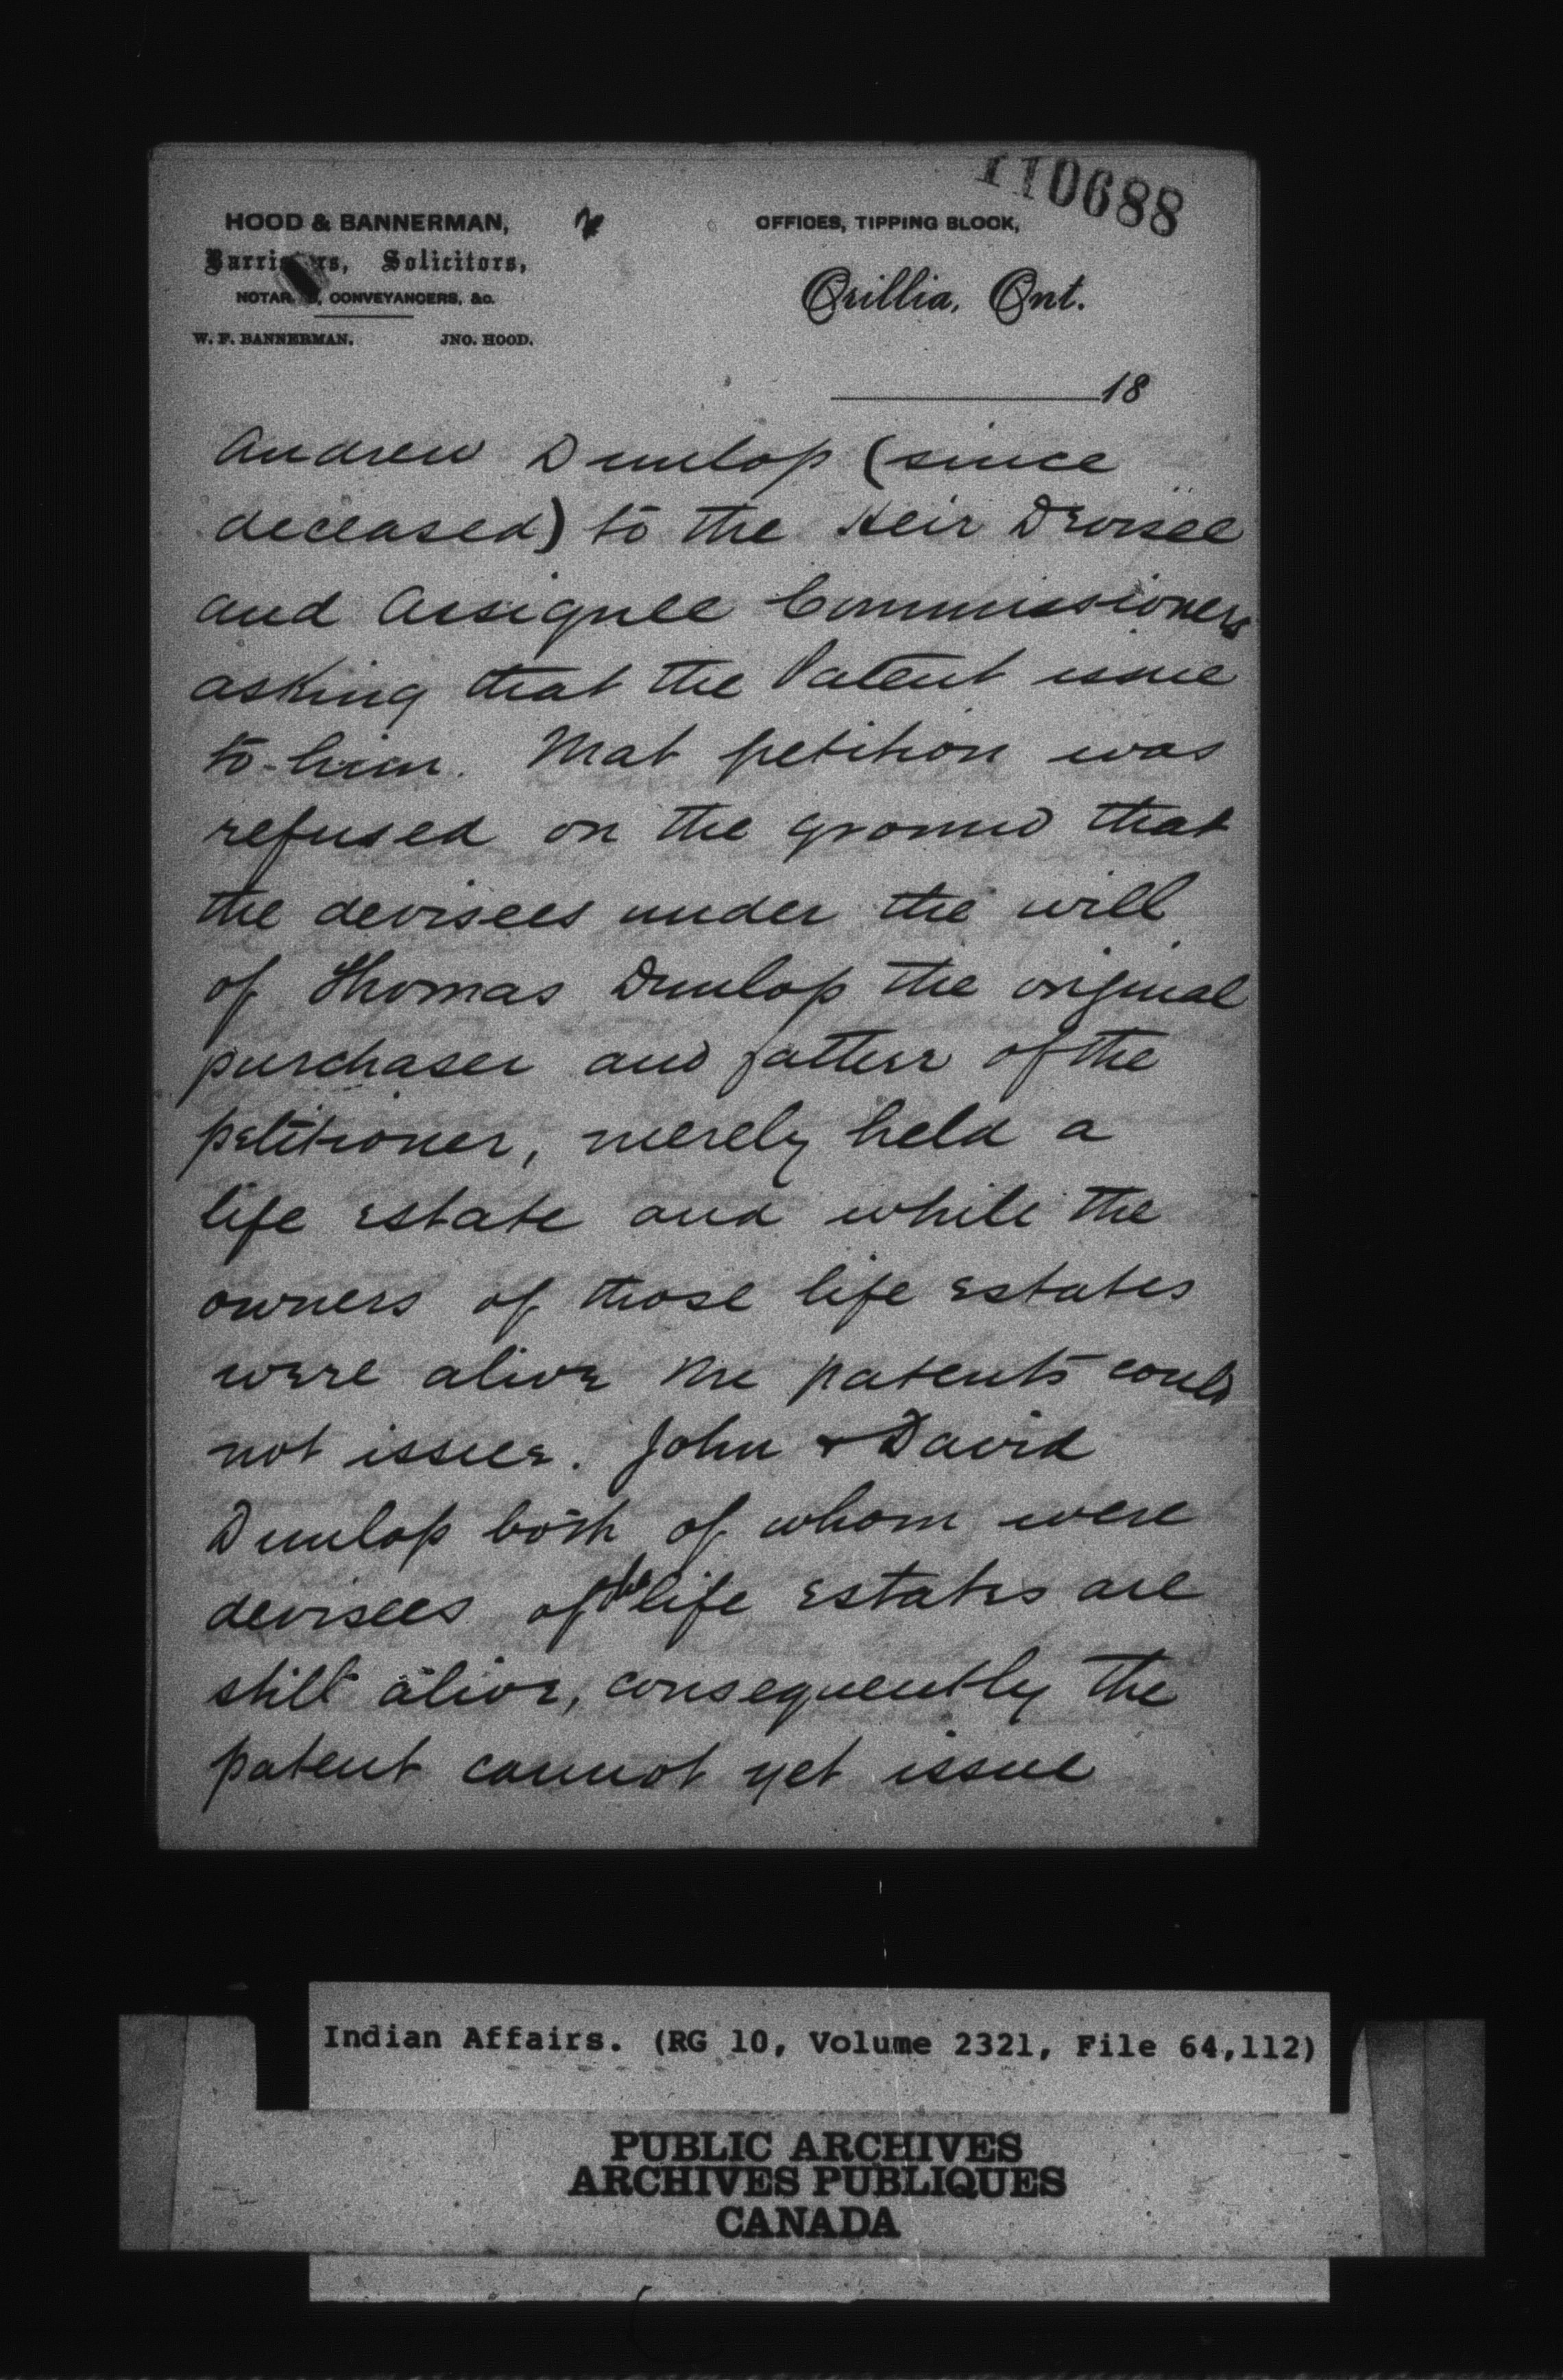 110688
HOOD & BANNERMAN,
Barristers, Solicitors,
NOTARIES, CONVEYANCERS, &c.
W. F. BANNERMAN. JNO. HOOD.
OFFICES, TIPPING BLOCK,
Orillia, Ont.
18
Andrew Dunlop (since
deceased) to the Heir Devisee
and Assignee Commissioners
asking that the Patent issue
to him. That petition was
refused on the ground that
the devisees under the will
of Thomas Dunlop the original
purchaser and father of the
petitioner, merely held a
life estate and while the
owners of those life estates
were alive the patents could
not issue. John & David
Dunlop both of whom were
devisees of the life estates are
still alive, consequently the
patent cannot yet issue
Indian Affairs. (RG 10, Volume 2321, File 64,112)
PUBLIC ARCHIVES
ARCHIVES PUBLIQUES
CANADA